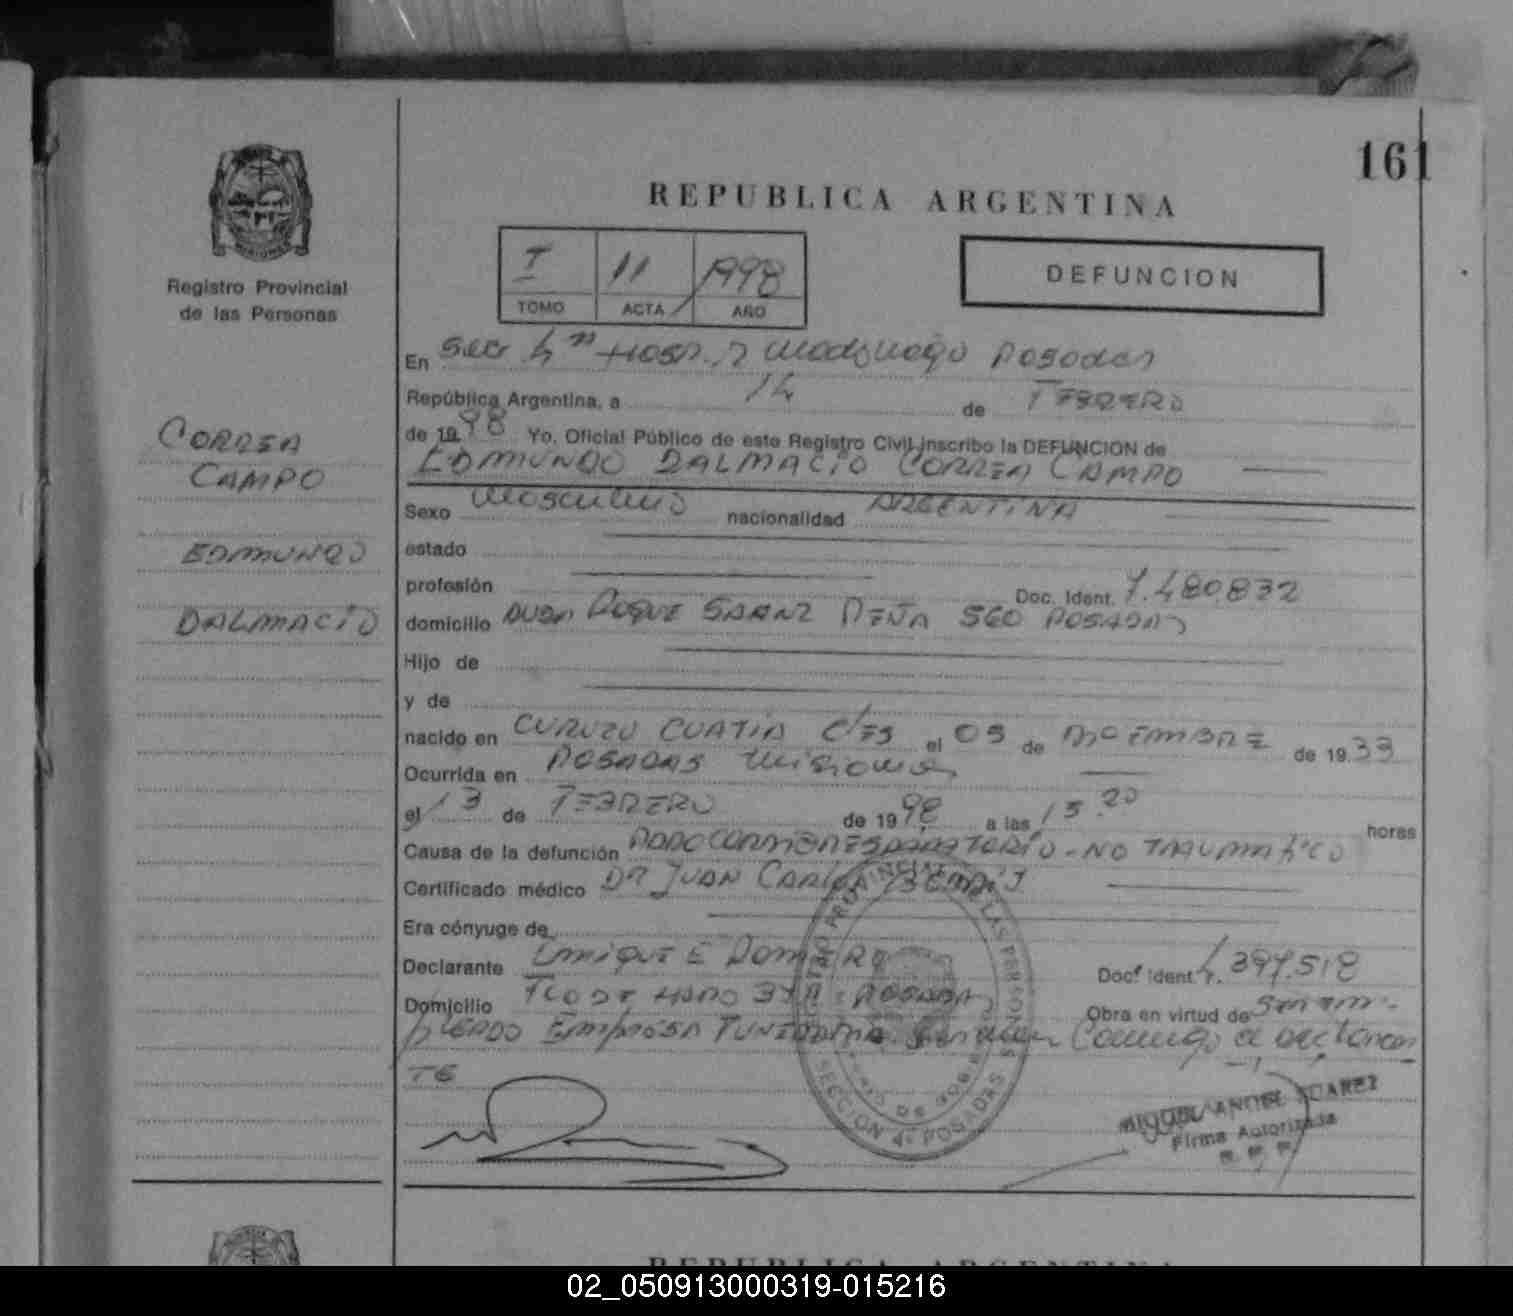 161
REPUBLICA ARGENTINA
Registro Provincial
de las Personas
I 11 1998
TOMO ACTA AÑO
DEFUNCION
CORREA
CAMPO
EDMUNDO
DALMACIO
En Secc 4ta Hosp. R Madariaga Posadas
República Argentina, a 14 de FEBRERO
de 1998 Yo, Oficial Público de este Registro Civil inscribo la DEFUNCION de
EDMUNDO DALMACIO CORREA CAMPO
Sexo Masculino nacionalidad ARGENTINA
estado
profesión Doc. Ident. 7.480832
domicilio AVDA ROQUE SAENZ PEÑA 560 POSADAS
Hijo de
y de
nacido en CURUZU CUATIA C/ES el 05 de de 1933
Ocurrida en POSADAS Misiones
el 13 de FEBRERO de 1998 a las 15.20 horas
Causa de la defunción PARO CARDIORESPIRATORIO - NO TRAUMATICO
Certificado médico DR JUAN CARLOS
Era cónyuge de
Declarante ENRIQUE E ROMERO Doc. Ident. 7.397.518
Domicilio POSADAS Obra en virtud de Ser em-
pleado EMPRESA FUNEBRE Firman Conmigo el declaran
TE
REGISTRO PROVINCIAL DE LAS PERSONAS
SECCION 4ª POSADAS
MIGUEL ANGEL SUAREZ
Firma Autorizada
R. P. P.
REPUBLICA ARGENTINA
02_050913000319-015216